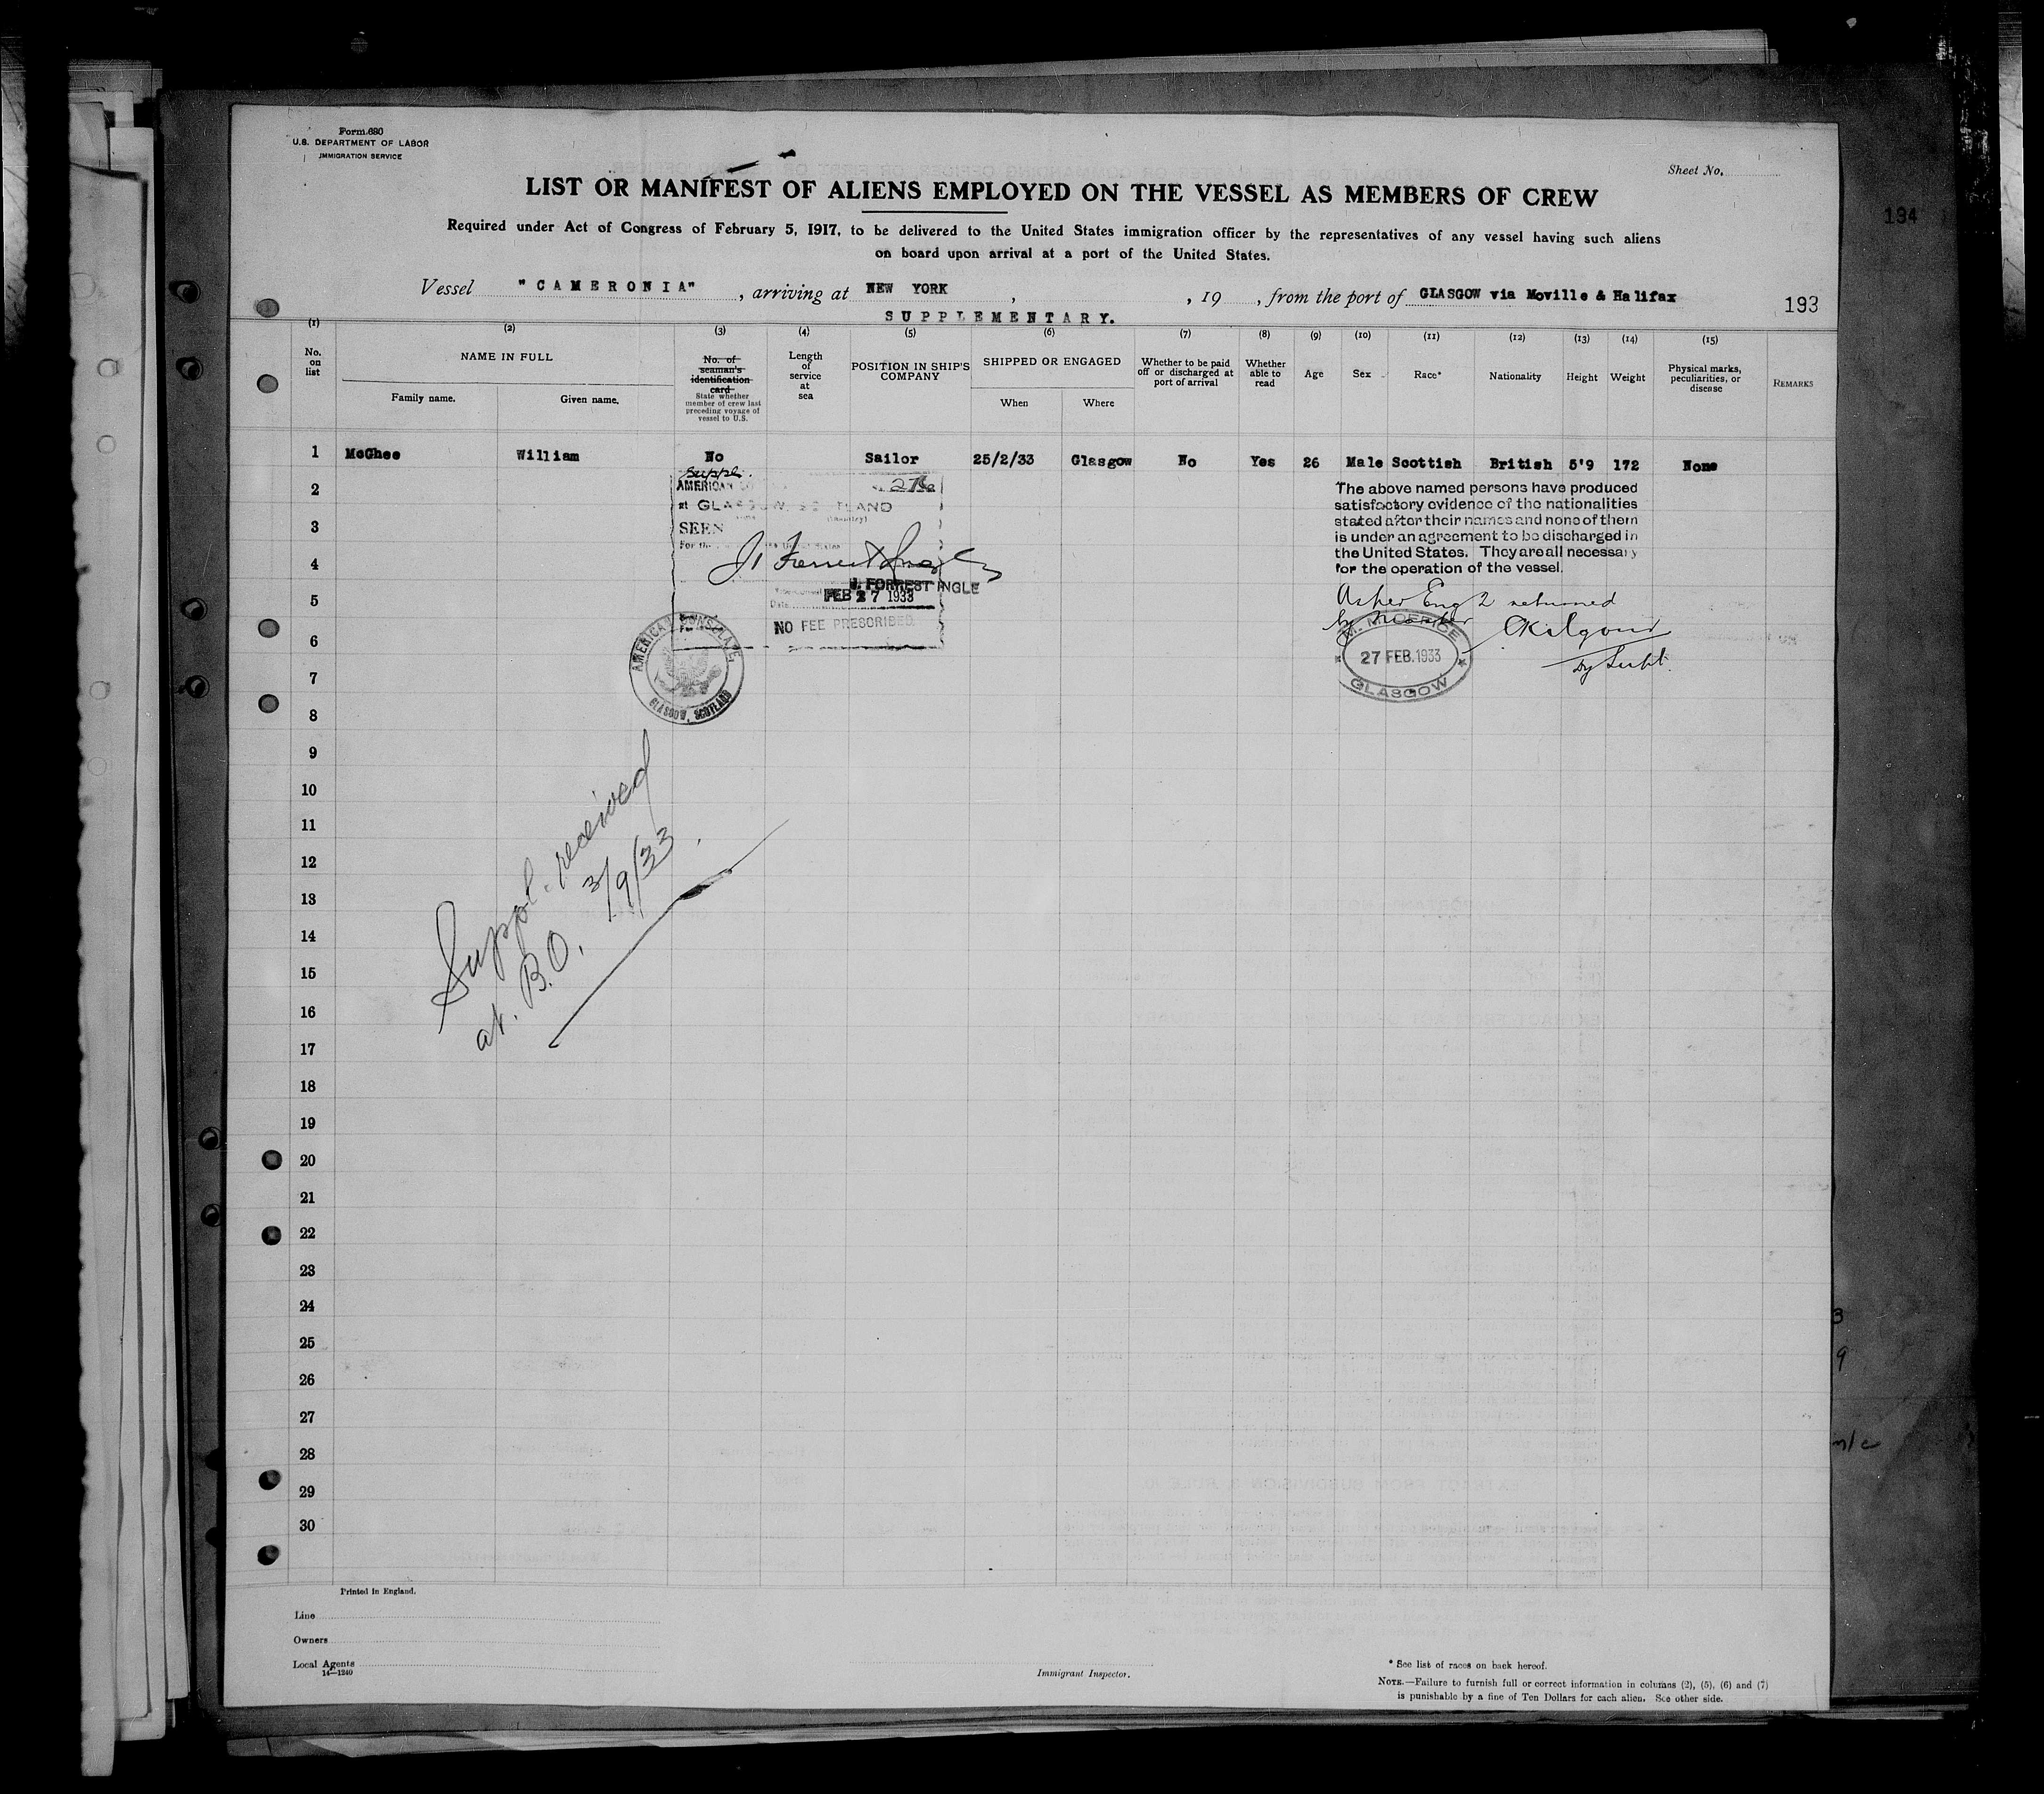 Form 680
U.S. DEPARTMENT OF LABOR
IMMIGRATION SERVICE
Sheet No.
134
LIST OR MANIFEST OF ALIENS EMPLOYED ON THE VESSEL AS MEMBERS OF CREW
Required under Act of Congress of February 5, 1917, to be delivered to the United States immigration officer by the representatives of any vessel having such aliens
on board upon arrival at a port of the United States.
Vessel "CAMERONIA", arriving at NEW YORK, , 19 , from the port of GLASGOW via Moville & Halifax
193
SUPPLEMENTARY.
(1) (2) (3) (4) (5) (6) (7) (8) (9) (10) (11) (12) (13) (14) (15)
No. on list
NAME IN FULL
Family name. Given name.
No. of seaman's identification card
State whether member of crew last preceding voyage of vessel to U.S.
Length of service at sea
POSITION IN SHIP'S COMPANY
SHIPPED OR ENGAGED
When Where
Whether to be paid off or discharged at port of arrival
Whether able to read
Age
Sex
Race*
Nationality
Height
Weight
Physical marks, peculiarities, or disease
REMARKS
1 McGhee William No Sailor 25/2/33 Glasgow No Yes 26 Male Scottish British 5'9 172 None
Suppl.
AMERICAN
at GLASGOW, SCOTLAND
(Country)
SEEN
For the United States
J. Forrest Ingle
J. FORREST INGLE
FEB 27 1933
Date
NO FEE PRESCRIBED
AMERICAN CONSULATE
GLASGOW, SCOTLAND
The above named persons have produced
satisfactory evidence of the nationalities
stated after their names and none of them
is under an agreement to be discharged in
the United States. They are all necessary
for the operation of the vessel.
As per Eng 2 returned
by Master
CKilgour
Dy Supt.
M. M. OFFICE
27 FEB. 1933
GLASGOW
2
3
4
5
6
7
8
9
10
11
12
13
14
15
16
17
18
19
20
21
22
23
24
25
26
27
28
29
30
Suppl. received
at. B.O. 3/9/33
3
9
n/c
Printed in England.
Line
Owners
Local Agents
14—1240
Immigrant Inspector.
* See list of races on back hereof.
NOTE.—Failure to furnish full or correct information in columns (2), (5), (6) and (7)
is punishable by a fine of Ten Dollars for each alien. See other side.